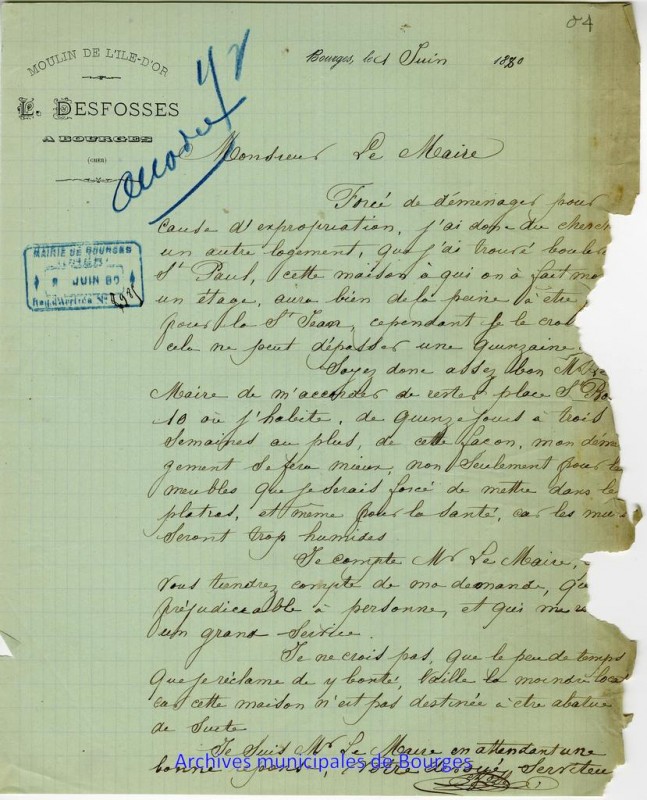 84
MOULIN DE L'ILE-D'OR
L. DESFOSSES
A BOURGES
(CHER)
Bourges, le 4 Juin 1880
accordé
MAIRIE DE BOURGES
JUIN 80
Monsieur Le Maire
Forcé de démenager pour
cause d'expropriation, j'ai donc du cherch
un autre logement, que j'ai trouvé boulev
St Paul, cette maison à qui on à fait mo
un étage, aura bien de la peine à être
pour la St Jean, cependant je le croi
cela ne peut dépasser une quinzaine.
Soyez donc assez bon Mr Le
Maire de m'accorder de rester place St Bo
10 où j'habite, de quinze jours à trois
semaines au plus, de cette façon, mon démé
gement se fera mieux, non seulement pour les
meubles que je serais forcé de mettre dans les
platres, et même pour la santé, car les murs
seront trop humides
Je compte Mr Le Maire,
vous tiendrez compte de ma demande, qui
préjudiciable à personne, et qui me r
un grand service.
Je ne crois pas, que le peu de temps
que je réclame de vtre bonté, la moindre
car cette maison n'est pas destinée à être abatue
de suite
Je suis Mr Le Maire en attendant une
bonne réponse, votre dévoué Serviteu
Archives municipales de Bourges